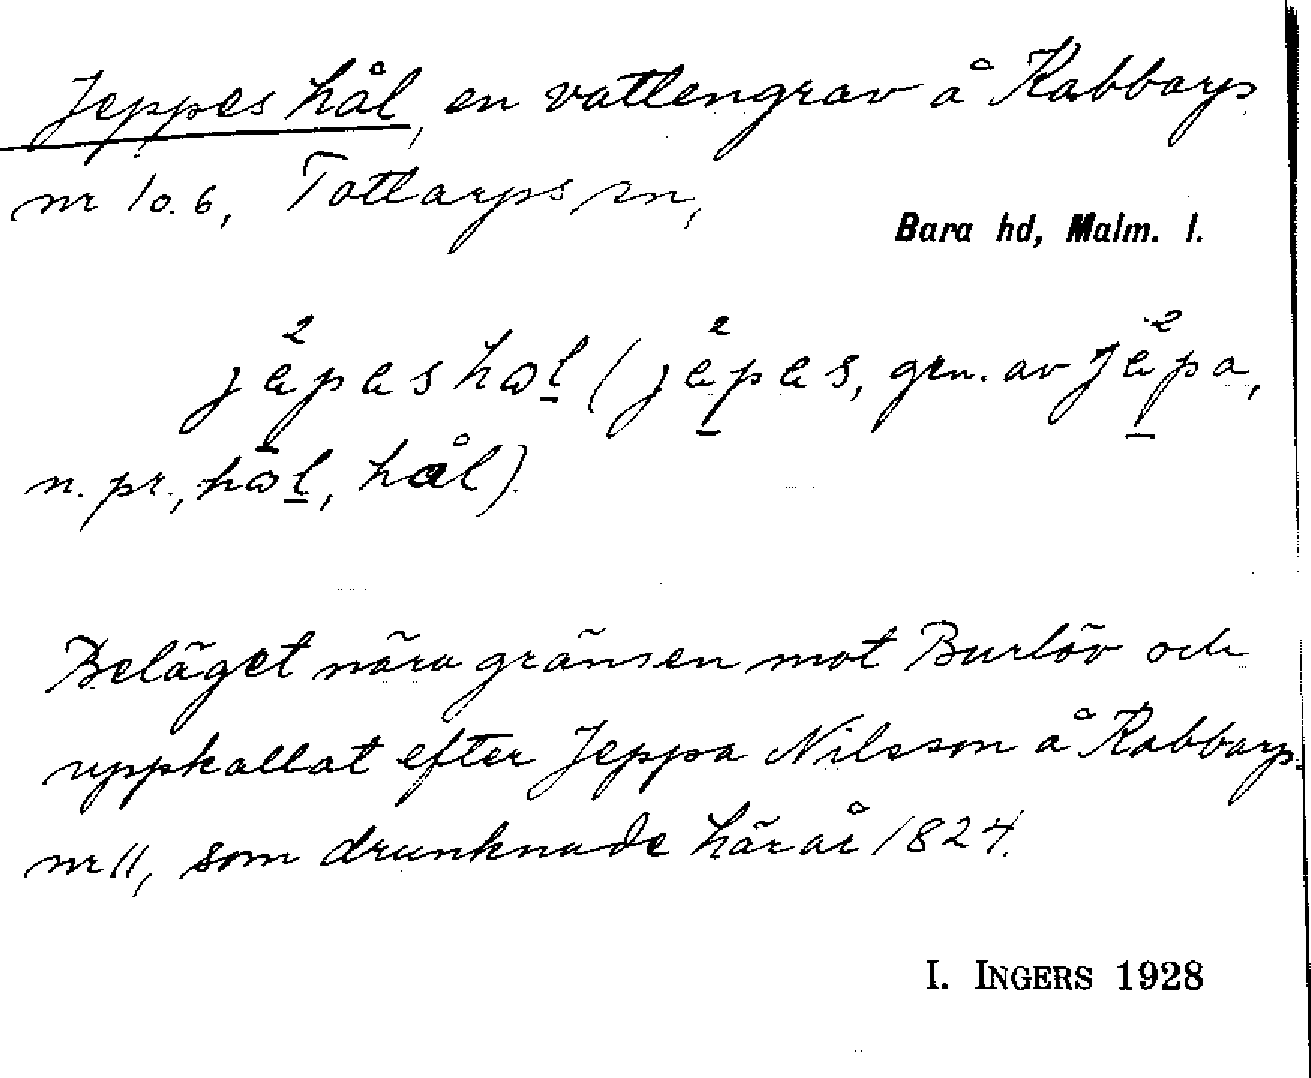 Jeppes hål, en vattengrav å Kabbarps
nr 10.6, Tottarps sn,
Bara hd, Malm. l.
jè²pes hoḻ (jè²p̱es, gen. av Jè²p̱a,
n. pr., hōḻ, hål)
Beläget nära gränsen mot Burlöv och
uppkallat efter Jeppa Nilsson å Kabbarp
nr 11, som drunknade här år 1824.
I. INGERS 1928